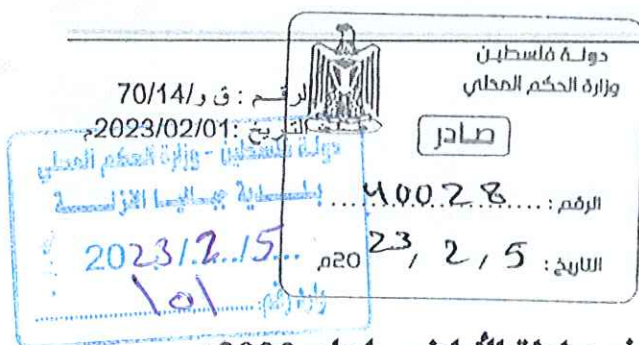 دولة فلسطين
وزارة الحكم المحلي
صادر
الرقم: 40028
التاريخ: 5 / 2 / 2023م
الرقم: ق و/70/14
التاريخ: 2023/02/01م
دولة فلسطين - وزارة الحكم المحلي
بلدية جباليا النزلة
2023/2/5
وارد رقم: 151